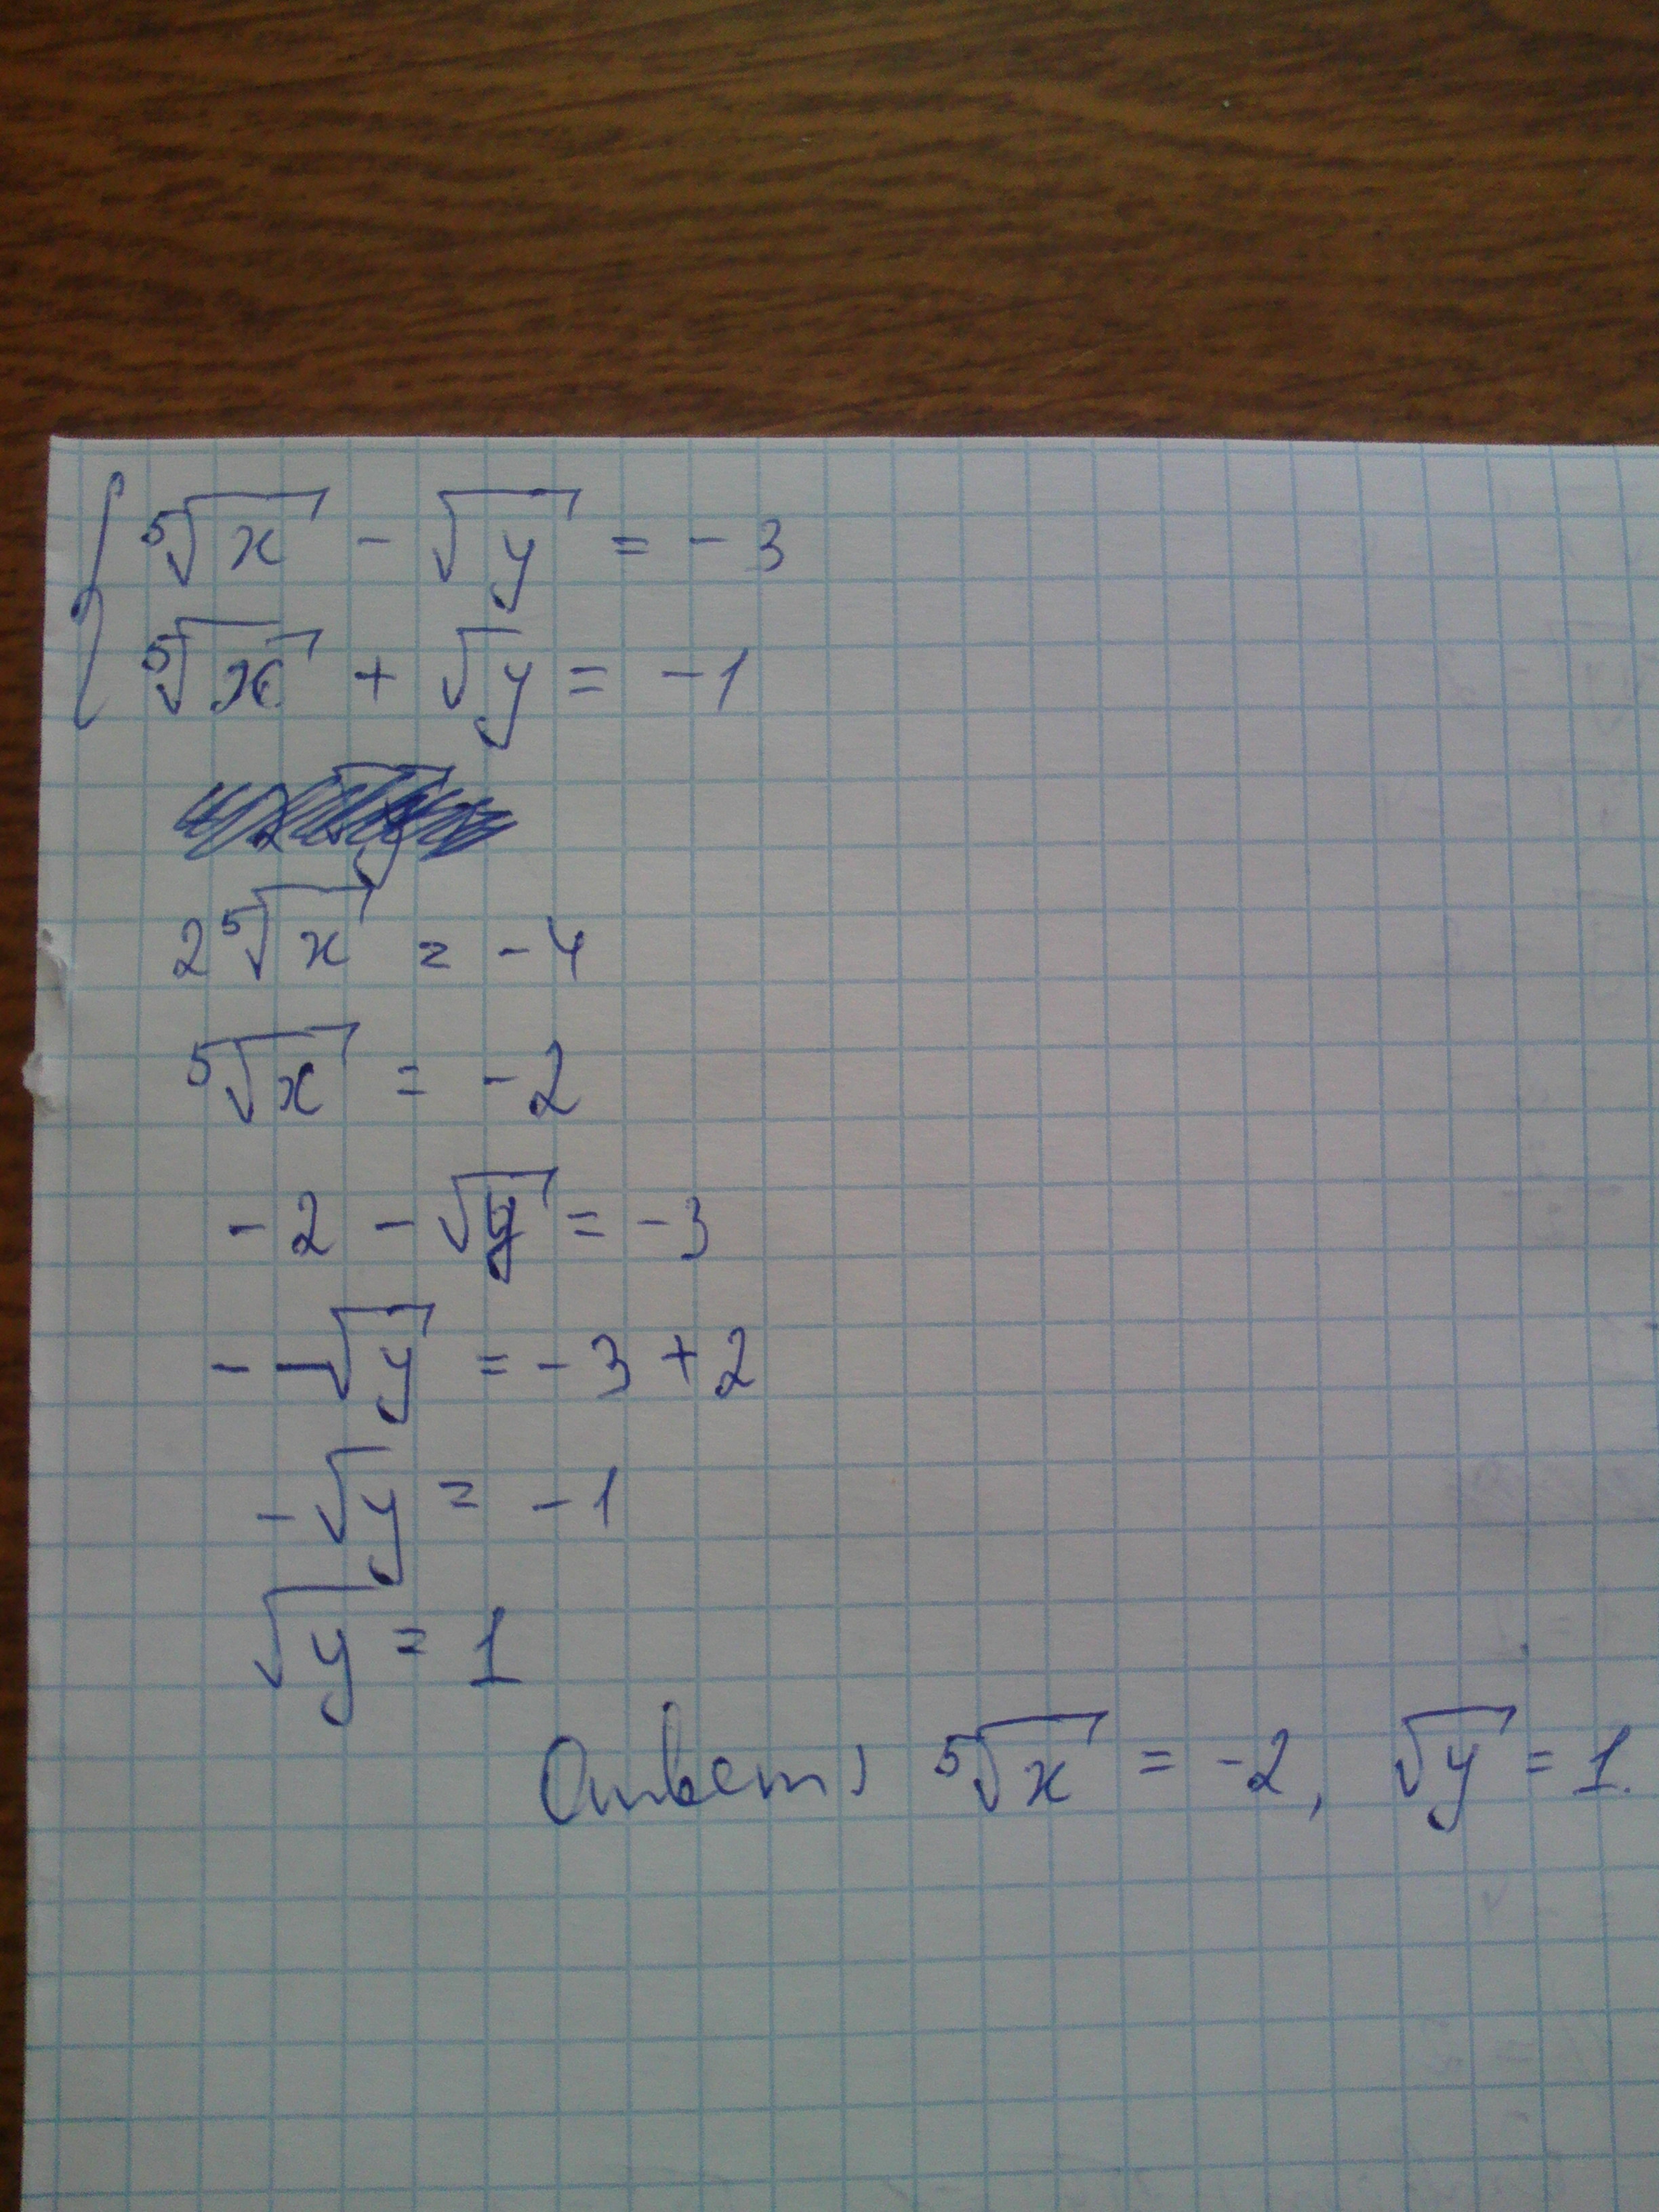 { ⁵√x - √y = -3
⁵√x + √y = -1
2 ⁵√x = -4
⁵√x = -2
-2 - √y = -3
- √y = -3 + 2
-√y = -1
√y = 1
Ответ: ⁵√x = -2, √y = 1.